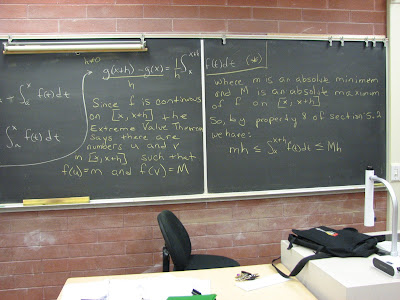 h≠0
g(x+h) - g(x) / h = 1/h ∫_x^{x+h} f(t) dt (*)
∫_a^x f(t) dt
∫_a^x f(t) dt
Since f is continuous
on [x, x+h] the
Extreme Value Theorem
says there are
numbers u and v
in [x, x+h] such that
f(u)=m and f(v)=M
where m is an absolute minimum
and M is an absolute maximum
of f on [x, x+h]
So, by property 8 of section 5.2
we have:
mh ≤ ∫_x^{x+h} f(t)dt ≤ Mh